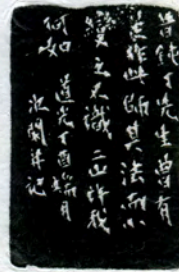 昔鈍丁先生曾有
是作此師其法而小
變之不識二正許我
何如 道光丁酉端月
次閑并記